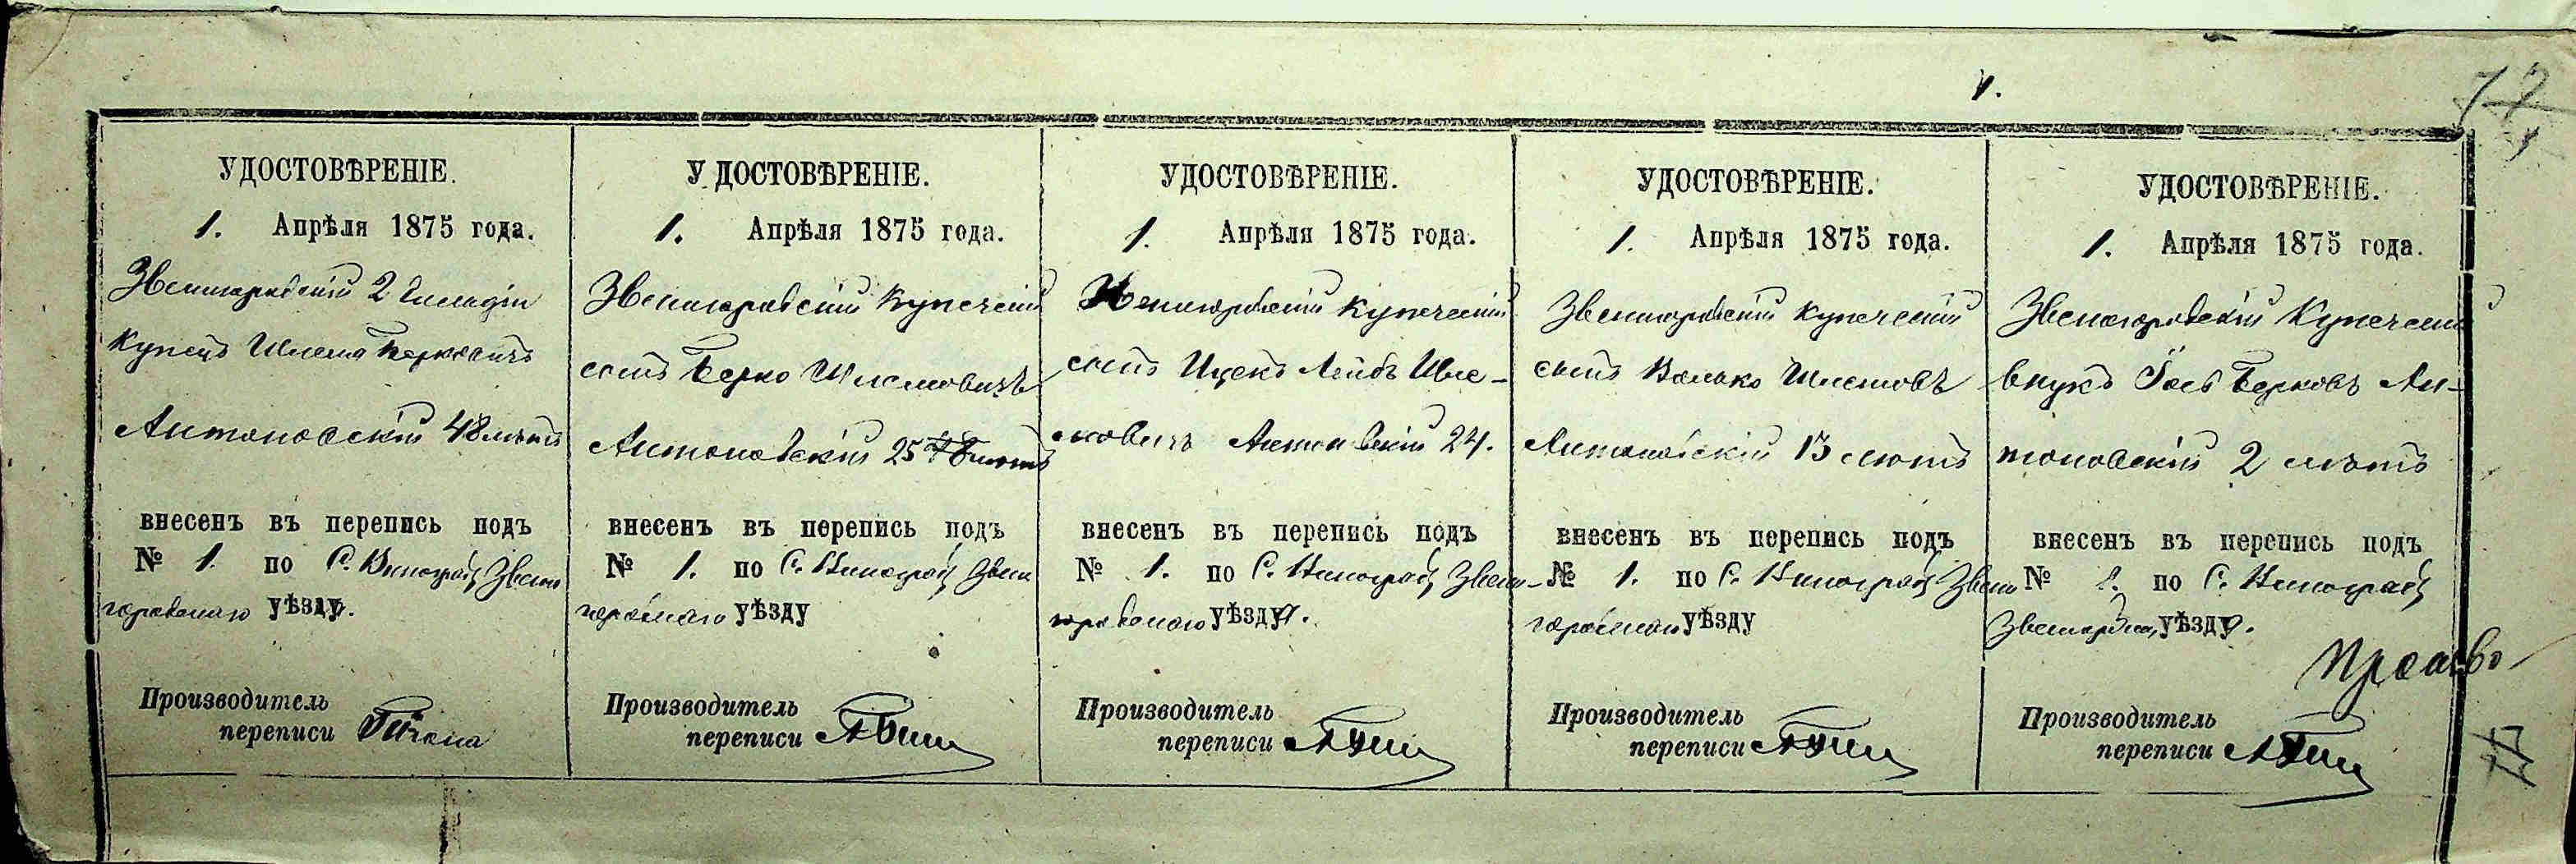 1.
72
УДОСТОВѢРЕНІЕ.
1. Апрѣля 1875 года.
Звенигородскій 2 гильдіи
Купецъ Шлема Берковичъ
Антоновскій 48 лѣтъ
внесенъ въ перепись подъ
№ 1. по С. Виноград Звени
городскаго уѣзду.
Производитель
переписи
УДОСТОВѢРЕНІЕ.
1. Апрѣля 1875 года.
Звенигородскій Купеческій
сынъ Берко Шлемовичъ
Антоновскій 25 лѣтъ
внесенъ въ перепись подъ
№ 1. по С. Виноград Звени
городскаго уѣзду
Производитель
переписи
УДОСТОВѢРЕНІЕ.
1. Апрѣля 1875 года.
Звенигородскій Купеческій
сынъ Ицекъ Лейбъ Шле-
мовичъ Антоновскій 24.
внесенъ въ перепись подъ
№ 1. по С. Виноград Звени-
городскаго уѣзду.
Производитель
переписи
УДОСТОВѢРЕНІЕ.
1. Апрѣля 1875 года.
Звенигородскій Купеческій
сынъ Волько Шлемовъ
Антоновскій 13 лѣтъ
внесенъ въ перепись подъ
№ 1. по С. Виноград Звени
городскаго уѣзду
Производитель
переписи
УДОСТОВѢРЕНІЕ.
1. Апрѣля 1875 года.
Звенигородскій Купеческій
внукъ Іось Берковъ Ан-
тоновскій 2 лѣтъ
внесенъ въ перепись подъ
№ 1. по С. Виноград
уѣзду.
Производитель
переписи